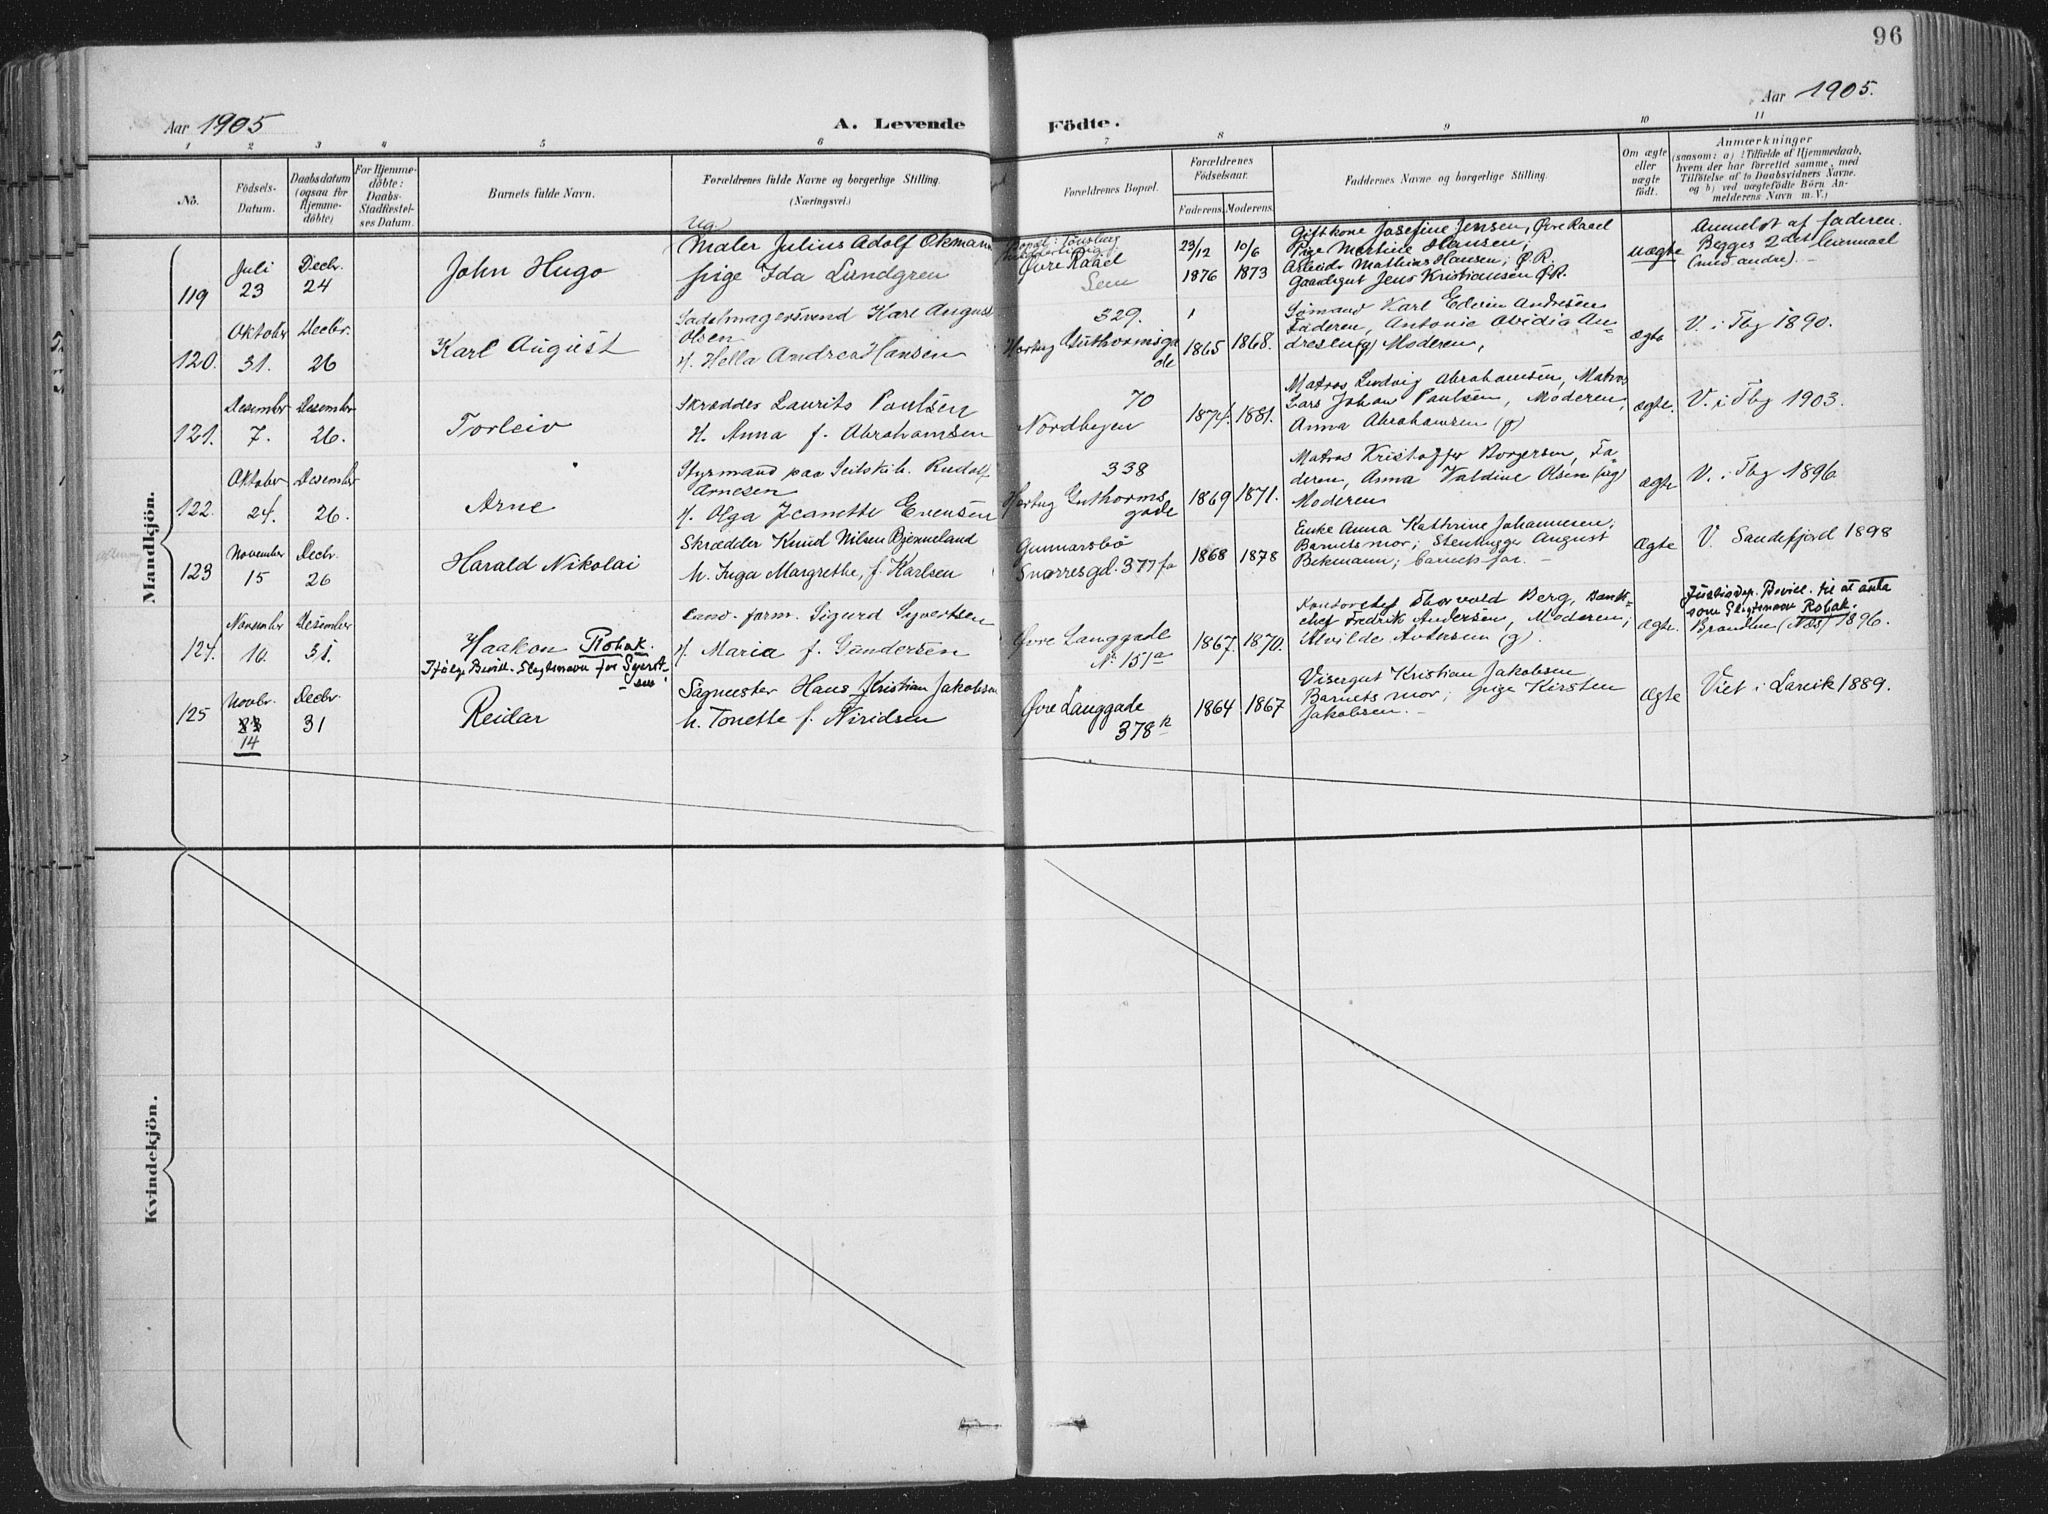 96
Aar 1905
A. Levende
Födte.
Aar 1905.
1 2 3 4 5 6 7 8 9 10 11
No.
Födsels-
Datum.
Daabsdatum
(ogsaa for
Hjemme-
döbte)
For Hjemme-
döbte:
Daabs-
Stadfæstel-
ses Datum.
Barnets fulde Navn.
Forældrenes fulde Navne og borgerlige Stilling.
(Næringsvei.)
Forældrenes Bopæl.
Forældrenes
Födselsaar.
Faderens. Moderens.
Faddernes Navne og borgerlige Stilling.
Om ægte
eller
uægte
födt.
Anmærkninger
(saasom: a) i Tilfælde af Hjemmedaab,
hvem der har forrettet samme, med
Tilföielse af to Daabsvidners Navne.
og b) ved uægtefödte Börn An-
melderens Navn m. V.)
Mandkjön.
119
Juli
23
Decbr.
24
John Hugo
Ug.
Maler Julius Adolf Okmann
pige Ida Lundgren
Bopæl: Tönsberg
Øvre Raael
Sem
23/12 1876
10/6 1873
Giftkone Josefine Jensen, Øvre Raael
Pige Martine Hansen;
Arbeidr Mathias Hansen; Ø. R.
Gaardsgut Jens Kristiansen Ø. R.
uægte
Anmeldt af faderen.
Begges 2det leiermaal
(med andre) -
120.
Oktober
31.
Decbr.
26
Karl August
Sadelmagersvend Karl August
Olsen
H. Hella Andrea Hansen
329.
Hertug Guthormsga
de
1865 1868.
Sömand Karl Edvin Andresen
Faderen, Antonie Ovidia An-
dresen (g) Moderen,
ægte
V. i Tbg 1890.
121.
Desember
7.
Desember
26.
Torleiv
Skrædder Laurits Paulsen
H. Anna f. Abrahamsen
70
Nordbyen
1874. 1881.
Matros Ludvig Abrahamsen, Matros
Lars Johan Paulsen, Moderen,
Anna Abrahamsen (g)
ægte.
V. i Tbg 1903.
122.
Oktober
24.
Desember
26.
Arne
Styrmand paa Seilskib. Rudolf
Arnesen
H. Olga Jeanette Evensen
338
Hertug Guthorms
gade
1869 1871.
Matros Kristoffer Borgersen, Fa-
deren, Anna Valdine Olsen (ug)
Moderen
ægte
V. i Tbg 1896.
123
November
15
Decbr.
26
Harald Nikolai
Skrædder Knud Nilsen Bjenneland
h. Inga Margrethe, f. Karlsen
Gunnarsbö
Snorresgd. 377 fa
1868 1878
Enke Anna Kathrine Johannesen,
Barnets mor; Stenhugger August
Bekmann; barnets far. -
Ægte
V. Sandefjord 1898
124.
November
16.
Desember
31.
Haakon Robak.
Ifölge Bevill. Slegtsnavn for Syvert-
sen.
cand. farm. Sigurd Syvertsen
H. Maria f. Gundersen
Øvre Langgade
No 151a
1867. 1870.
Kontorchef Thorvald Berg, Bank-
chef Fredrik Andersen, Moderen,
Alvilde Andersen (g).
ægte.
Justisdep. Bevill. til at anta
som Slegtsnavn Robak.
Brandbu (Næs) 1896.
125
Novbr.
23
14
Decbr.
31
Reidar
Sagmester Hans Kristian Jakobsen
h. Tonette f. Niridsen
Øvre Langgade
378 k
1864 1867
Visergut Kristian Jakobsen
Barnets mor; pige Kirsten
Jakobsen. -
Ægte
Viet i Larvik 1889.
Kvindekjön.